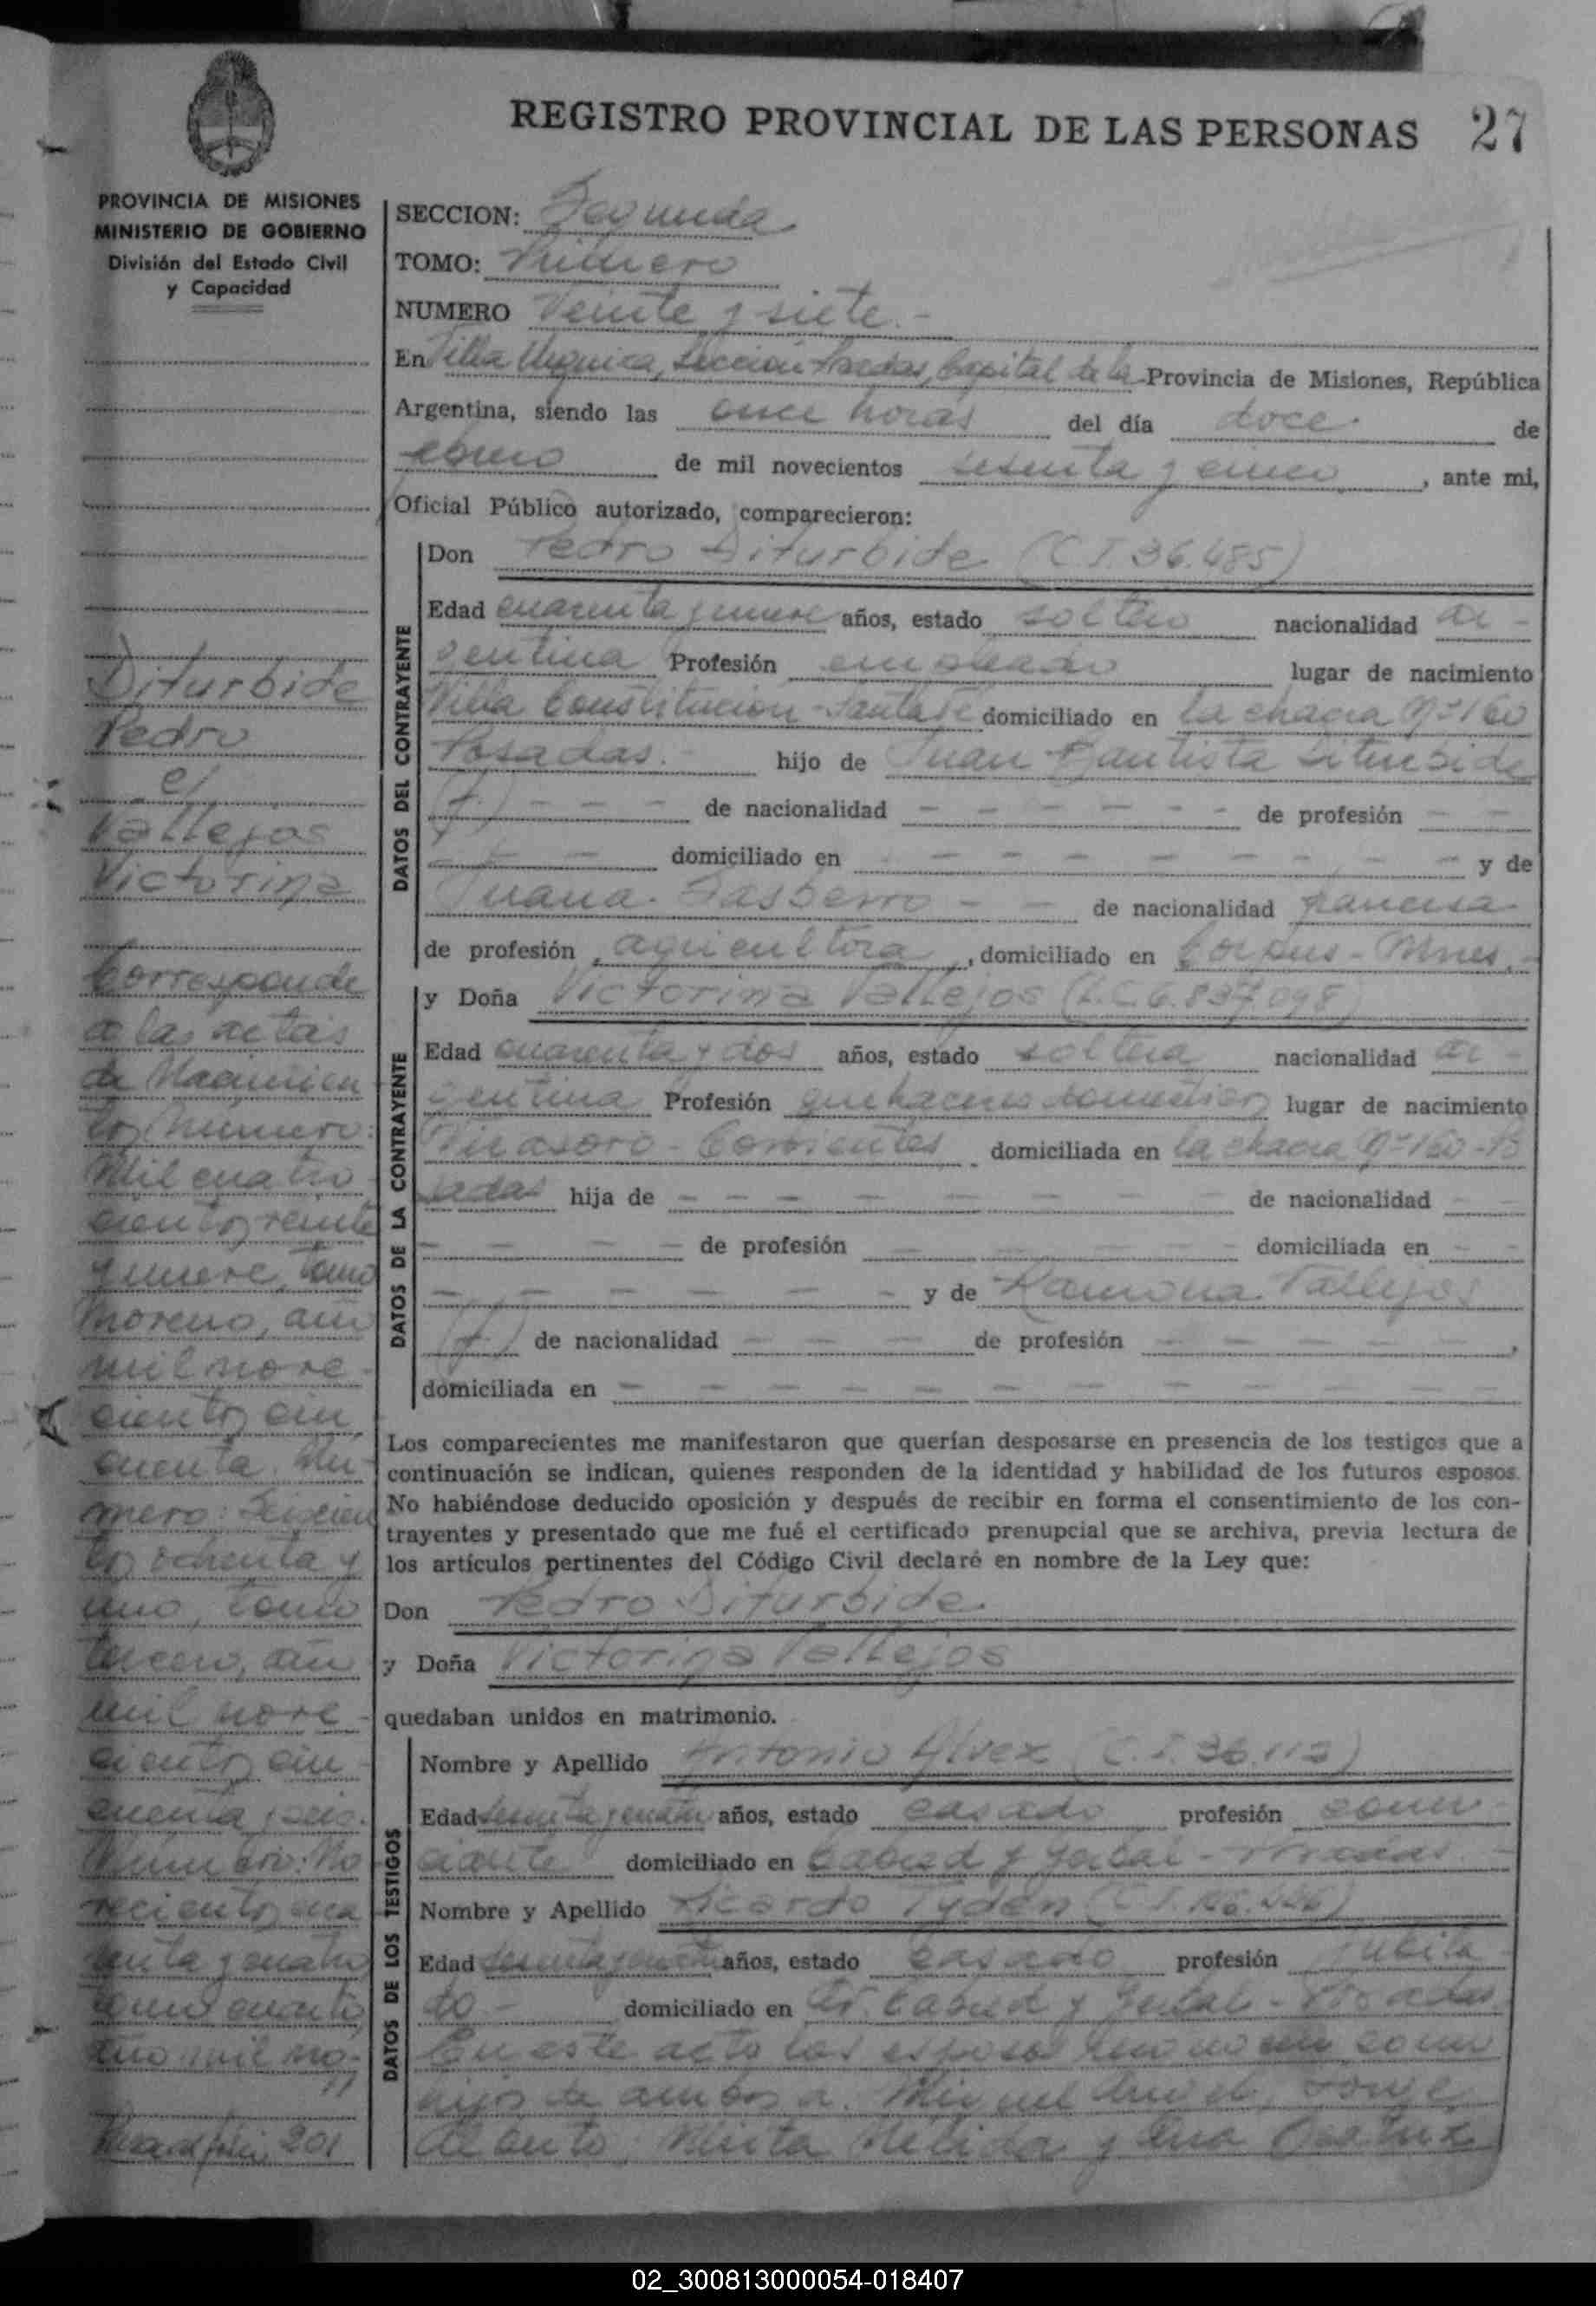 REGISTRO PROVINCIAL DE LAS PERSONAS 27
PROVINCIA DE MISIONES
MINISTERIO DE GOBIERNO
División del Estado Civil
y Capacidad
SECCION: Segunda
TOMO: Primero
NUMERO Veinte y siete.-
En Villa Urquiza, Sección Posadas, Capital de la Provincia de Misiones, República
Argentina, siendo las once horas del día doce de
enero de mil novecientos sesenta y cinco, ante mi,
Oficial Público autorizado, comparecieron:
DATOS DEL CONTRAYENTE
Don Pedro Diturbide (C.I. 36.485)
Edad cuarenta y nueve años, estado soltero nacionalidad ar-
gentina Profesión empleado lugar de nacimiento
Villa Constitución - Santa Fé domiciliado en la chacra Nº 160
Posadas.- hijo de Juan Bautista Diturbide
(+) - - - de nacionalidad - - - - - - - de profesión - -
- - - domiciliado en - - - - - - - - y de
Juana - - de nacionalidad francesa
de profesión agricultora, domiciliado en Corpus - Mnes.-
DATOS DE LA CONTRAYENTE
y Doña Victorina Vallejos (L.C. 6.837.098)
Edad cuarenta y dos años, estado soltera nacionalidad ar-
gentina Profesión quehaceres domésticos lugar de nacimiento
Virasoro - Corrientes domiciliada en la chacra Nº 160 - Po
sadas hija de - - - - - - - de nacionalidad - -
- - - - de profesión - - - - domiciliada en - -
- - - - - - y de Ramona Vallejos
(+) de nacionalidad - - - de profesión - - - - ,
domiciliada en - - - - - - - - - - - -
Los comparecientes me manifestaron que querían desposarse en presencia de los testigos que a
continuación se indican, quienes responden de la identidad y habilidad de los futuros esposos.
No habiéndose deducido oposición y después de recibir en forma el consentimiento de los con-
trayentes y presentado que me fué el certificado prenupcial que se archiva, previa lectura de
los artículos pertinentes del Código Civil declaré en nombre de la Ley que:
Don Pedro Diturbide
y Doña Victorina Vallejos
quedaban unidos en matrimonio.
DATOS DE LOS TESTIGOS
Nombre y Apellido Antonio Alvez (C.I. 36.113)
Edad sesenta y cuatro años, estado casado profesión comer-
ciante domiciliado en Cabred y - Posadas.-
Nombre y Apellido Ricardo Tydén (C.I.
Edad sesenta y años, estado casado profesión jubila-
do - domiciliado en Av. Cabred y - Posadas
En este acto los esposos reconocen como
hijos de ambos a: Miguel Angel, Jorge
Alberto, Mirta Nélida y Ana Beatriz
Diturbide
Pedro
c/
Vallejos
Victorina
Corresponde
a las actas
de Nacimien
tos número:
Mil cuatro
cientos veinte
y nueve, tomo
Moreno, año
mil nove-
cientos cin
cuenta. Nú-
mero: Seiscien
tos ochenta y
uno, tomo
tercero, año
mil nove-
cientos cin-
cuenta y seis.
Número: No
vecientos cua
renta y cuatro
tomo cuarto,
año mil no-
201
02_300813000054-018407